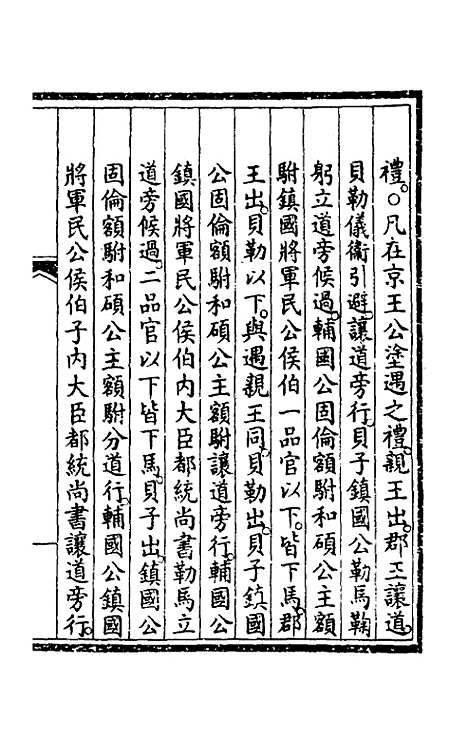 禮。○凡在京王公塗遇之禮。親王出。郡王讓道。
貝勒儀衞引避。讓道旁行。貝子鎮國公勒馬鞠
躬立道旁候過。輔國公固倫額駙和碩公主額
駙鎮國將軍民公侯伯一品官以下。皆下馬。郡
王出。貝勒以下。與遇親王同。貝勒出。貝子鎮國
公固倫額駙和碩公主額駙讓道旁行。輔國公
鎮國將軍民公侯伯內大臣都統尚書勒馬立
道旁候過。二品官以下皆下馬。貝子出。鎮國公
固倫額駙和碩公主額駙分道行。輔國公鎮國
將軍民公侯伯子內大臣都統尚書讓道旁行。
一